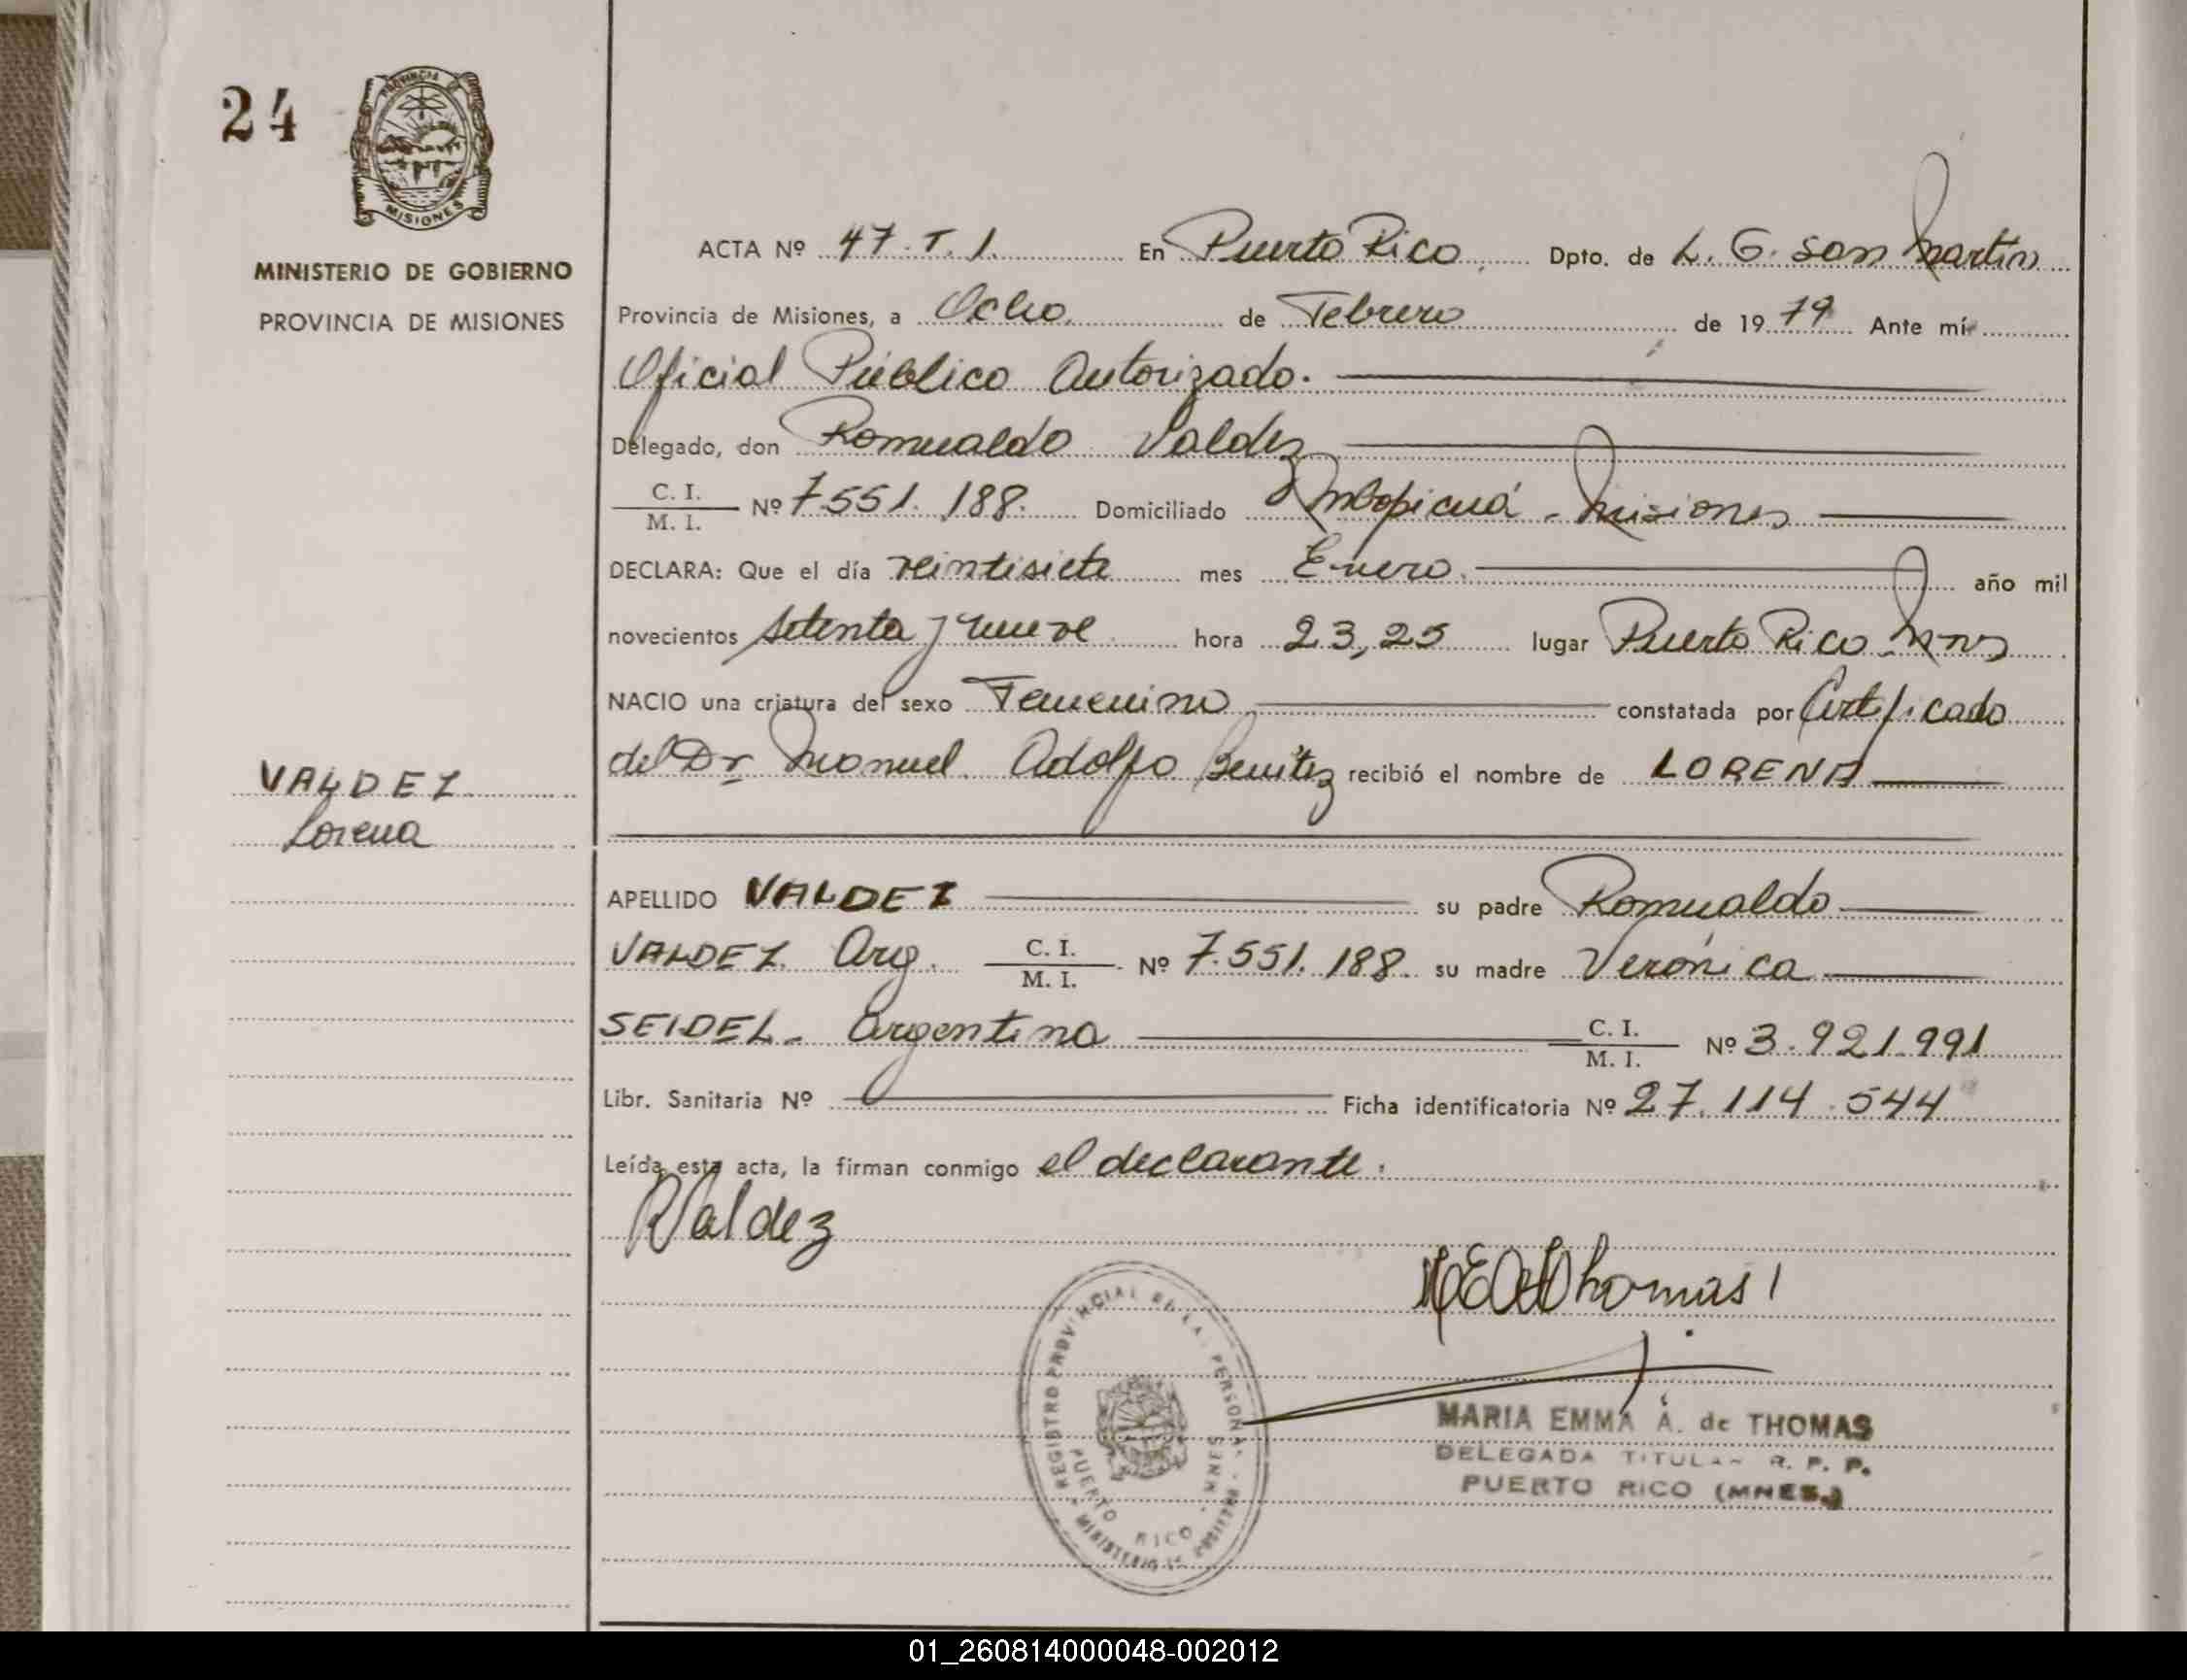 24
PROVINCIA DE
MISIONES
MINISTERIO DE GOBIERNO
PROVINCIA DE MISIONES
VALDEZ
Lorena
ACTA Nº 47. T. 1. En Puerto Rico, Dpto. de L. G. San Martín
Provincia de Misiones, a Ocho. de Febrero de 1979 Ante mí
Oficial Público Autorizado.
Delegado, don Romualdo Valdez
C. I.
M. I. Nº 7551.188. Domiciliado Mbopicuá - Misiones
DECLARA: Que el día veintisiete mes Enero. año mil
novecientos setenta y nueve hora 23,25 lugar Puerto Rico Mnes
NACIO una criatura del sexo Femenino constatada por Certificado
del Dr Manuel Adolfo Benítez recibió el nombre de LORENA
APELLIDO VALDEZ su padre Romualdo
VALDEZ Arg. C. I.
M. I. Nº 7.551.188. su madre Verónica
SEIDEL - Argentina C. I.
M. I. Nº 3.921.991
Libr. Sanitaria Nº Ficha identificatoria Nº 27.114.544
Leída esta acta, la firman conmigo el declarante.
RValdez
MEAdeThomas
REGISTRO PROVINCIAL DE LAS PERSONAS
PUERTO RICO - MNES
MARIA EMMA A. de THOMAS
DELEGADA TITULAR R. P. P.
PUERTO RICO (MNES.)
01_260814000048-002012